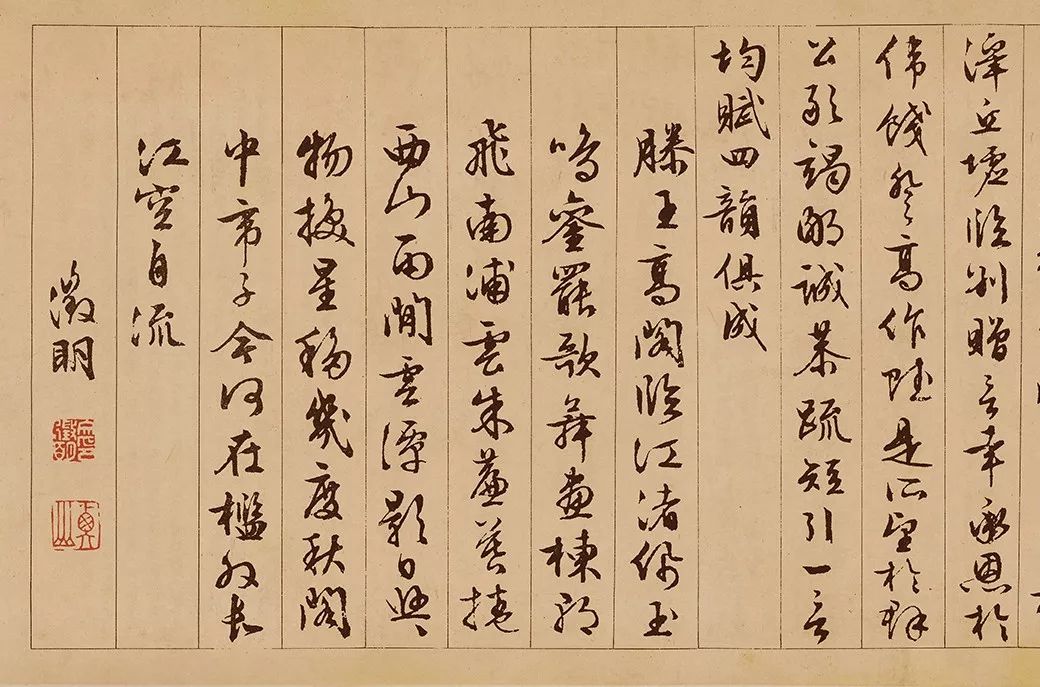 澤丘墟臨別贈言幸承恩於
偉餞登高作賦是所望於群
公敢竭鄙誠恭疏短引一言
均賦四韻俱成
滕王高閣臨江渚佩玉
鳴鑾罷歌舞畫棟朝
飛南浦雲朱簾暮捲
西山雨閒雲潭影日悠〻
物換星移幾度秋閣
中帝子今何在檻外長
江空自流
徵明
衡山